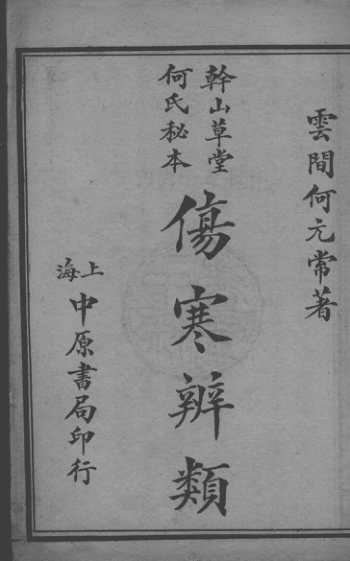 雲間何元常著
幹山草堂
何氏秘本
傷寒辨類
上海
中原書局印行